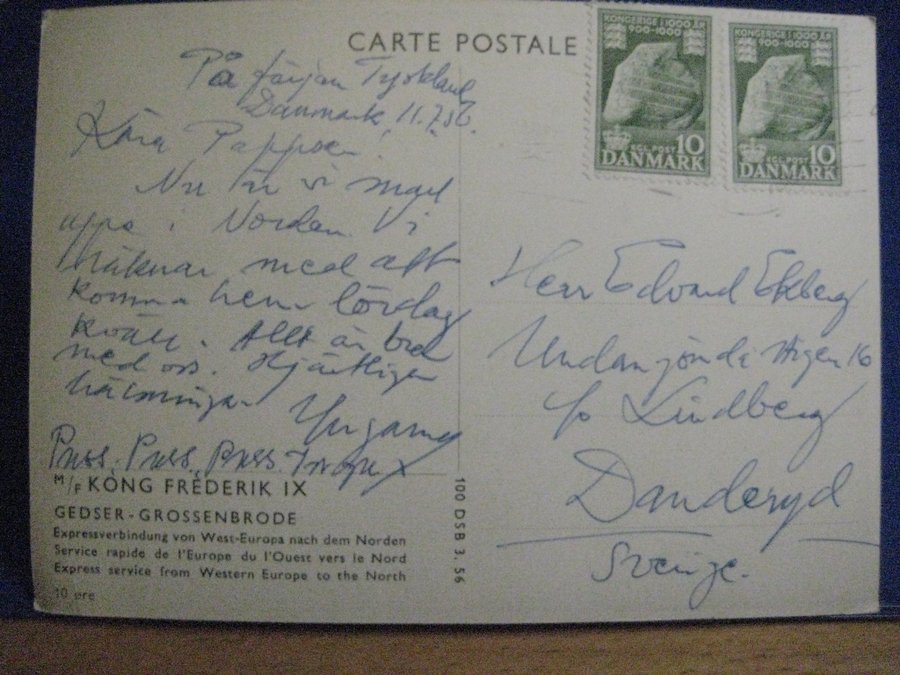 CARTE POSTALE
På färjan Tyskland
Danmark 11.7.56.
Kära Pappsen!
Nu är vi snart
uppe i Norden. Vi
räknar med att
komma hem lördag
kväll. Allt är bra
med oss. Hjärtliga
hälsningar
Puss, Puss, Puss.
M/F KONG FREDERIK IX
GEDSER-GROSSENBRODE
Expressverbindung von West-Europa nach dem Norden
Service rapide de l'Europe du l'Ouest vers le Nord
Express service from Western Europe to the North
10 øre
100 DSB 3. 56
KONGERIGE I 1000 ÅR
900-1000
KGL. POST 10
DANMARK
KONGERIGE I 1000 ÅR
900-1000
KGL. POST 10
DANMARK
Herr Edvard Ekberg
16
c/o Lindberg
Danderyd
Sverige.